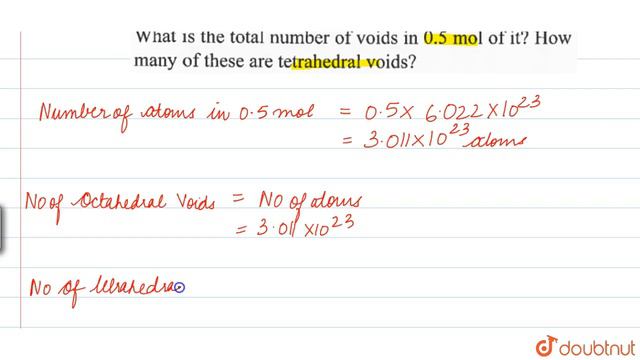 What is the total number of voids in 0.5 mol of it? How
many of these are tetrahedral voids?
Number of atoms in 0.5 mol = 0.5 X 6.022 X 10^23
= 3.011 X 10^23 atoms
No of Octahedral Voids = No of atoms
= 3.011 X 10^23
No of tetrahedra
doubtnut